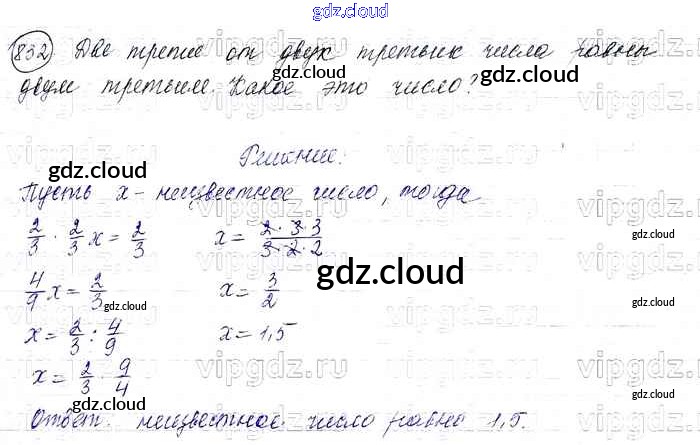 gdz.cloud
832 Две трети от двух третьих числа равны
двум третьим. Какое это число?
gdz.cloud
Решение.
gdz.cloud
Пусть x - неизвестное число, тогда
2/3 · 2/3 x = 2/3 x = 2·3·3/3·2·2
gdz.cloud
gdz.cloud
4/9 x = 2/3 x = 3/2
gdz.cloud
gdz.cloud
x = 2/3 : 4/9 x = 1,5
gdz.cloud
x = 2/3 · 9/4
gdz.cloud
gdz.cloud
Ответ: неизвестное число равно 1,5.
vipgdz.com